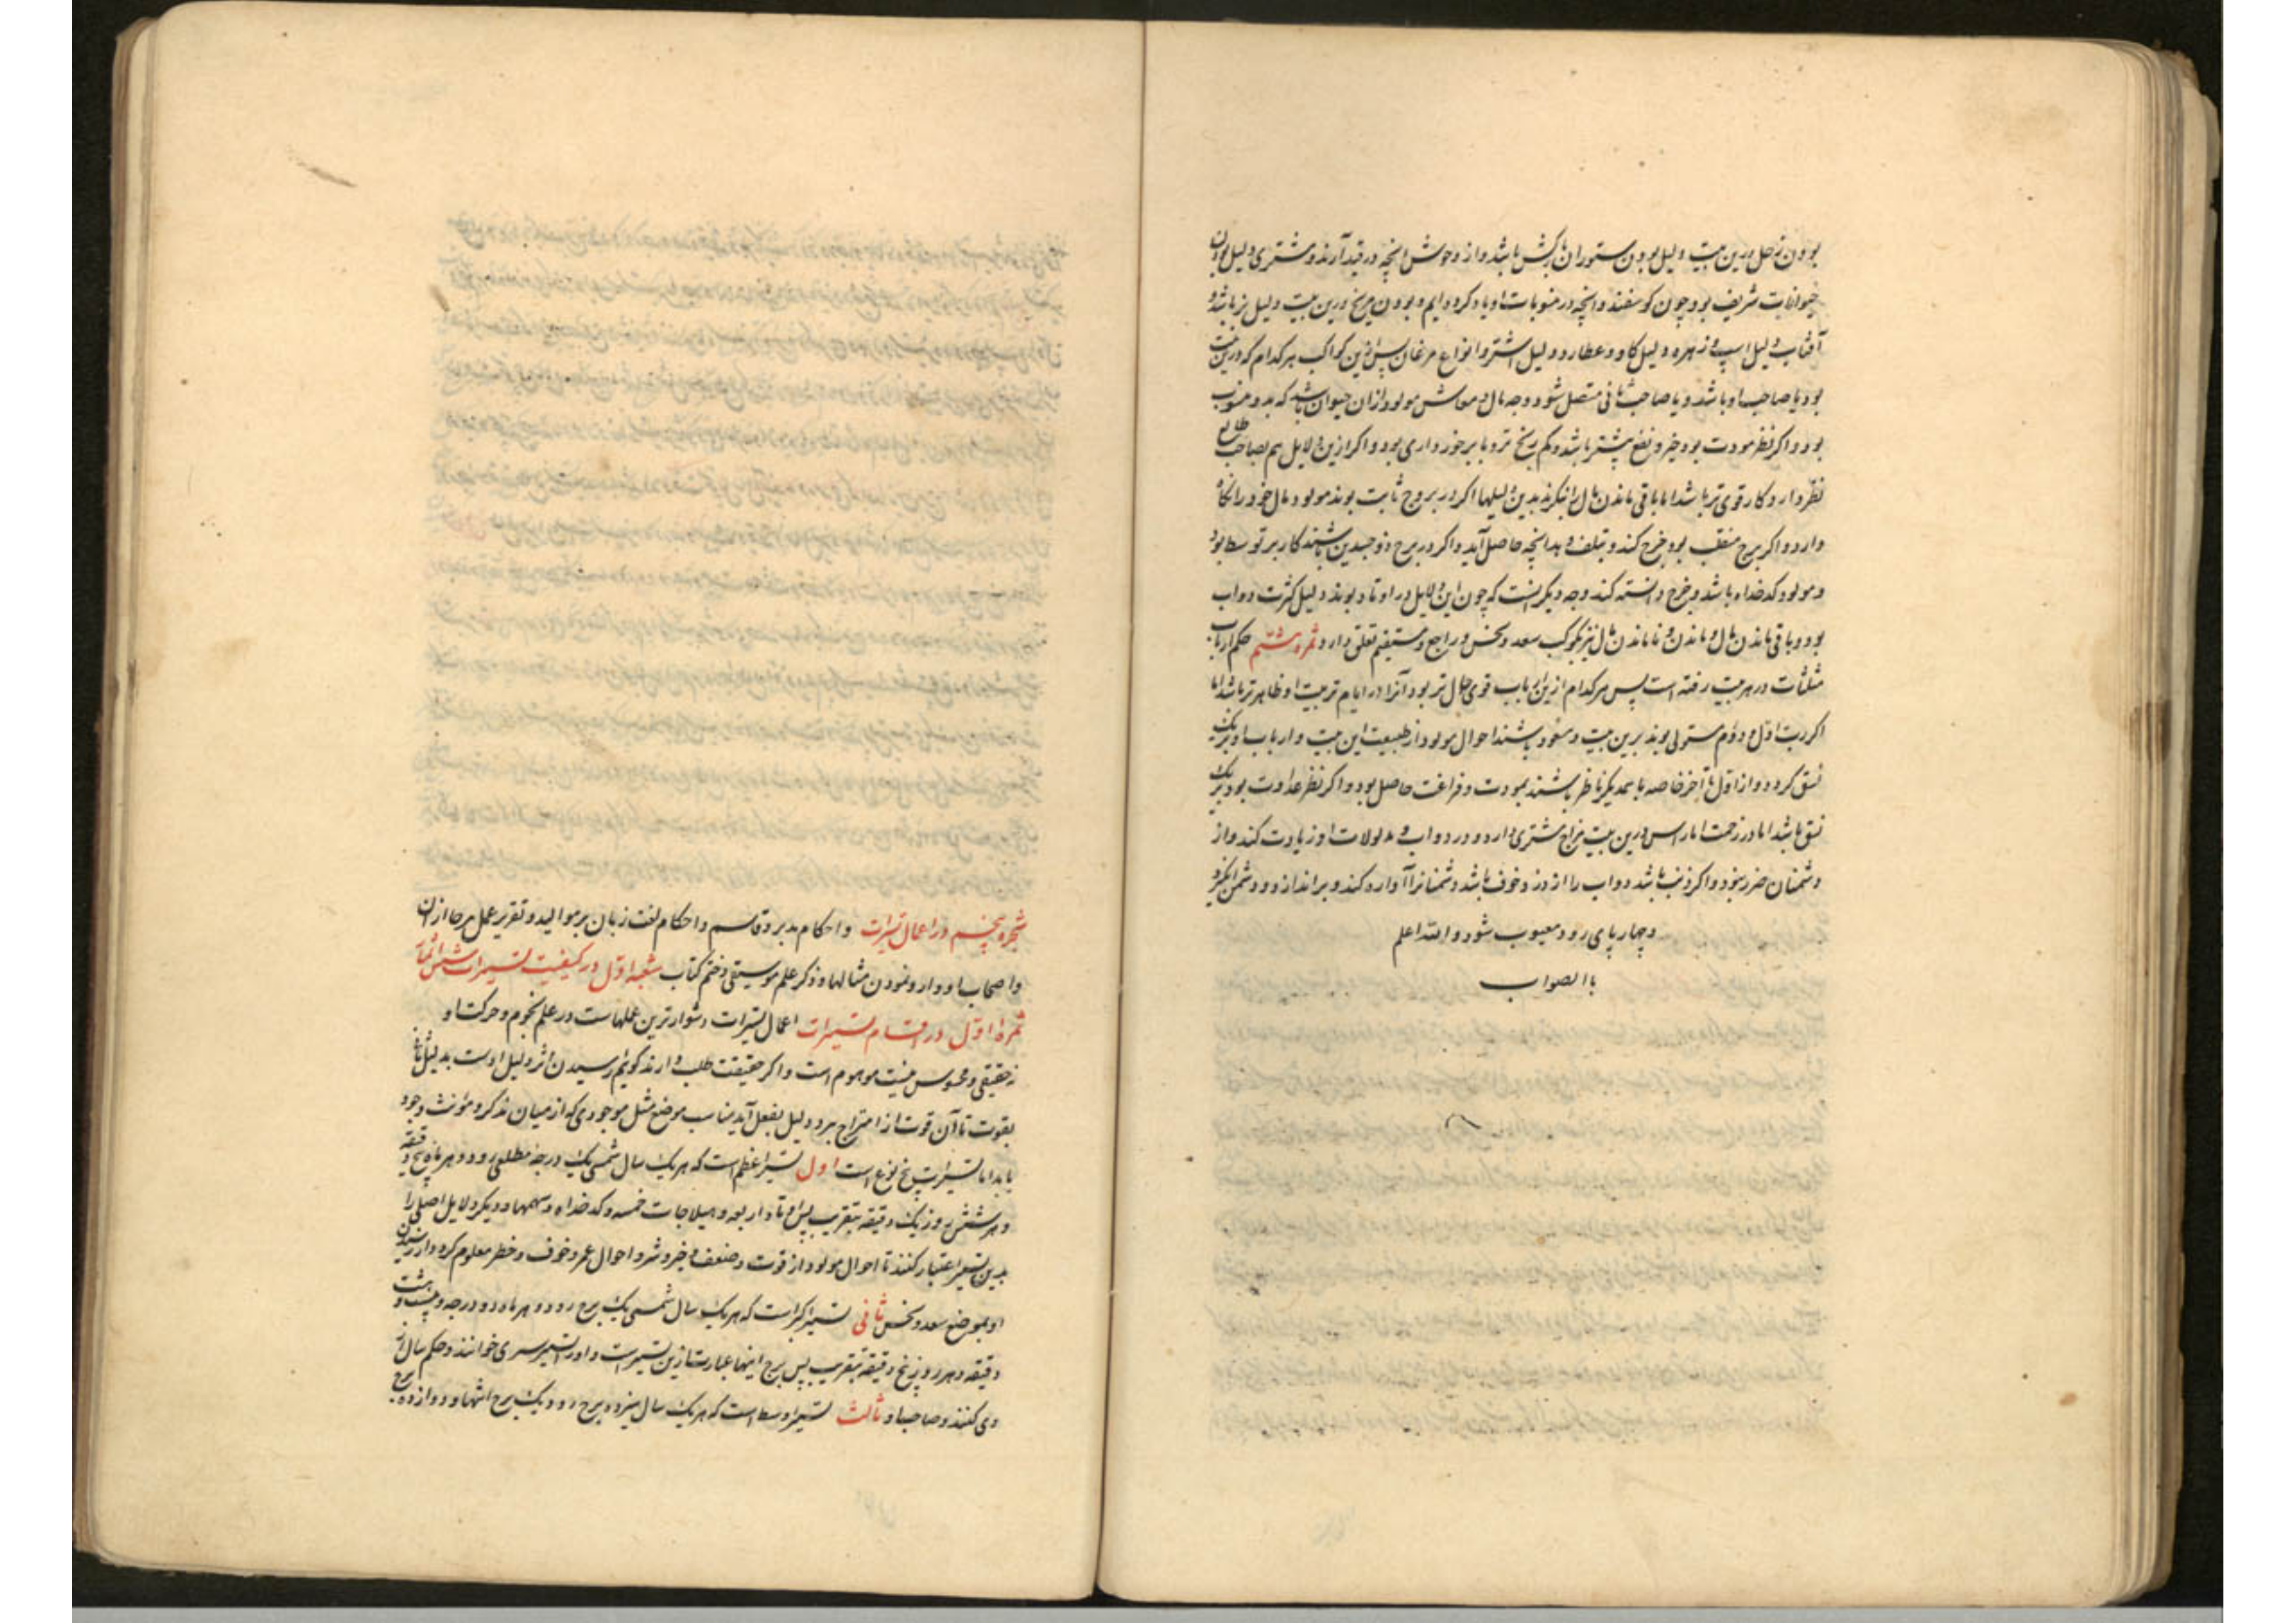 بودن زحل درین بیت دلیل بودن ستوران بارکش باشد و از وحوش انچه در قید آرند و مشتری دلیل بودن
حیوانات شریف بود چون کوسفند و انچه در منسوبات او یاد کرده ایم و بودن مریخ درین بیت دلیل بز باشد و
آفتاب دلیل اسپ و زهره دلیل کاو و عطارد دلیل اشتر و انواع مرغان پس ازین کواکب هرکدام که درین بیت
بود یا صاحب او باشد و یا صاحب ثانی متصل شود وجه مال و معاش مولود ازان حیوان باشد که بدو منسوب
بود و اکر نظر مودت بود خیر و نفع بیشتر باشد و کم رنج تر و با برخورداری بود و اکر ازین دلایل هم بصاحب طالع
نظر دارد کار قوی تر باشد اما باقی ماندن مال را بنکرند بدین دلیلها اکر در بروج ثابت بوند مولود مال خود را نکاه
دارد و اکر برج منقلب بود خرج کند و تلف و بدانچه حاصل آید و اکر در برج ذوجسدین باشند کار بر توسط بود
و مولود کدخداه باشد و خرج دانسته کند وجه دیکر انست که چون این دلایل در اوتاد بوند دلیل کثرت دواب
بود و باقی ماندن مال و ماندن و ناماندن مال نیز بکوکب سعد و نحس و راجع و مستقیم تعلق دارد ثمره هشتم حکم ارباب
مثلثات در هر بیت رفته است پس هرکدام ازین ارباب قوی حال تر بود آنرا در ایام تربیت او ظاهر تر باشد اما
اکر رب اول و دوم مستولی بوند برین بیت و مسعود باشند احوال مولود از طبیعت این بیت و ارباب او بر یک
نسق کردد و از اول تا آخر خاصه با همدیکر ناظر باشند بمودت و فراغت حاصل بود و اکر نظر عداوت بود بر یک
نسق باشد اما در زحمت اما راس درین بیت مزاج مشتری دارد و در دواب و مدلولات او زیادت کند و از
دشمنان ضرر نبود و اکر ذنب باشد دواب را از دزد خوف باشد و دشمنانرا آواره کند و براندازد و دشمن انکیزد
و چهارپای رود و معیوب شود و الله اعلم
باالصواب
شجره پنجم در اعمال تسیرات و احکام مدبر و قاسم و احکام لغت زبان بر موالید و تقریر عمل هرجا از ان
و اصحاب ادوار و نمودن مثالها و ذکر علم موسیقی و ختم کتاب شعبه اول در کیفیت تسییرات شش ثمرات
ثمرهٔ اول در اقسام تسییرات اعمال تسیرات دشوارترین عملهاست در علم نجوم و حرکت او
نه حقیقی و محسوس نیست موهوم است و اکر حقیقت طلب دارند کویم رسیدن اثر دلیل اوست بدلیل ثانی
بقوت تا آن قوت از امتزاج هردو دلیل بفعل آید مناسب موضع مثل موجودی که از میان مذکر و مؤنث وجود
یابد اما تسییرات پنج نوع است اول تسییر اعظم است که هر یک سال شمسی یک درجه مطلعی رود و هر ماه پنج دقیقه
و هر شش روز یک دقیقه بتقریب پس اوتاد اربعه و هیلاجات خمسه و کدخداه و سهمها و دیکر دلایل اصلی را
بدین تسییر اعتبار کنند تا احوال مولود از قوت و ضعف و خیر و شر و احوال عمر و خوف و خطر معلوم کردد از رسیدن
او بموضع سعد و نحس ثانی تسییر اکبر است که هر یک سال شمسی یک برج رود و هر ماه دو درجه و بیست و هشت
دقیقه و هر روز پنج دقیقه بتقریب پس برج انتها عبارت ازین تسییر است و او را تسییر سری خوانند و حکم سال بر
وی کنند و صاحب او ثالث تسییر اوسط است که هر یک سال سیزده برج رود یک برج انتها و دوازده برج